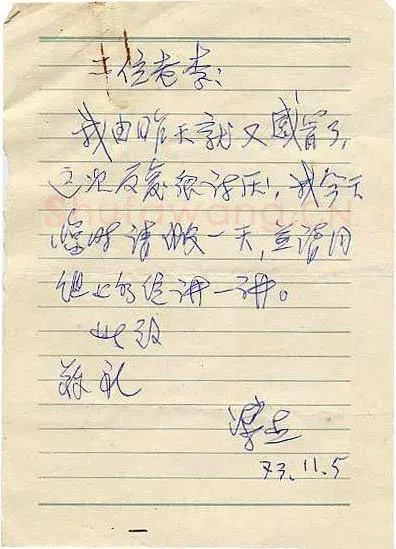 二位老李:
我由昨天就又感冒了,
这次反复很讨厌,我今天
Shufawang.CN
临时请假一天,并请同
组上的 讲一讲。
此致
敬礼
73.11.5